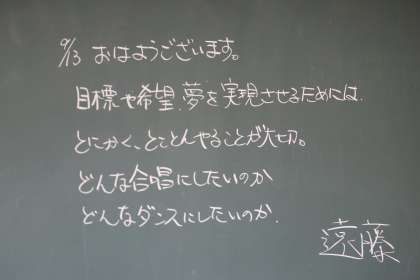 9/13 おはようございます。
目標や希望、夢を実現させるためには、
とにかく、とことんやることが大切。
どんな合唱にしたいのか
どんなダンスにしたいのか.
遠藤